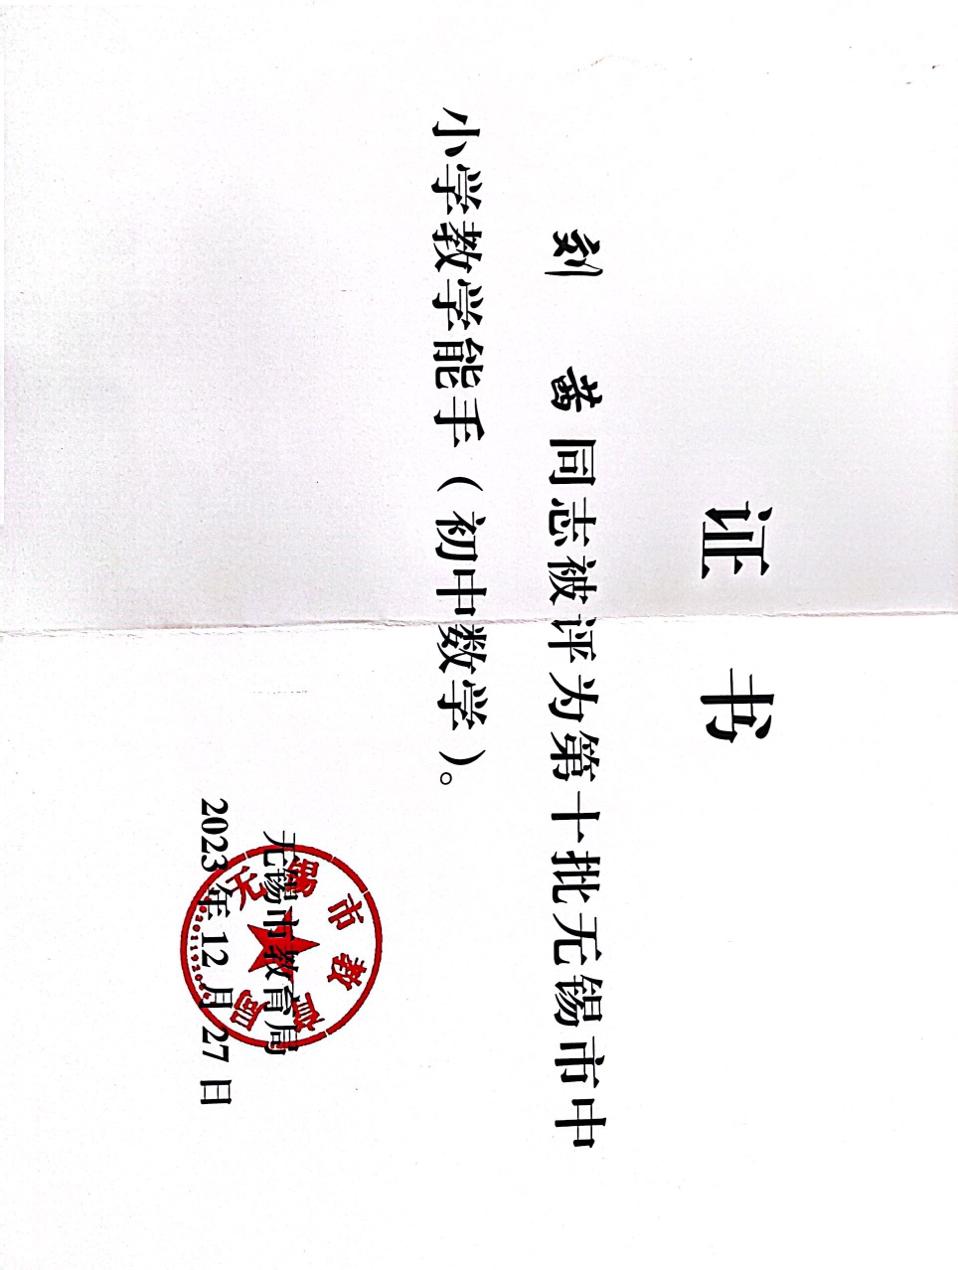 证 书
刘 茜同志被评为第十批无锡市中
小学教学能手（初中数学）。
无锡市教育局
2023年12月27日
无锡市教育局